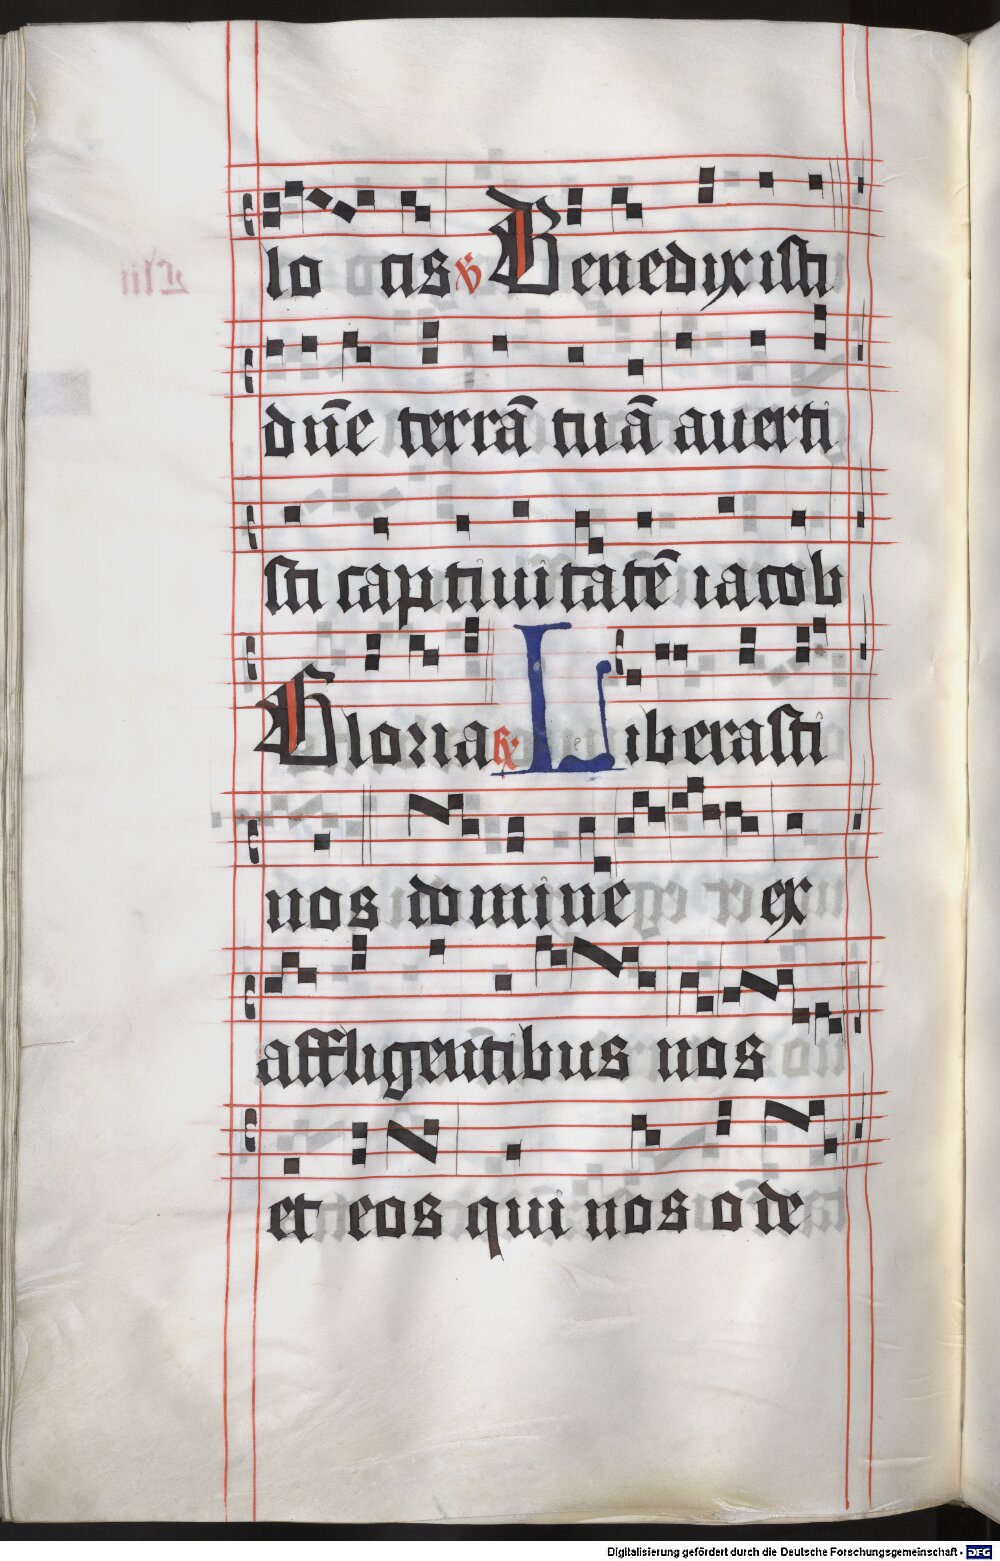 lo cis ℣ Benedixisti
dñe terrā tuā auerti
sti captiuitatē iacob
Gloria ℟ Liberasti
nos domine ex
affligentibus nos
et eos qui nos ode
Digitalisierung gefördert durch die Deutsche Forschungsgemeinschaft - DFG